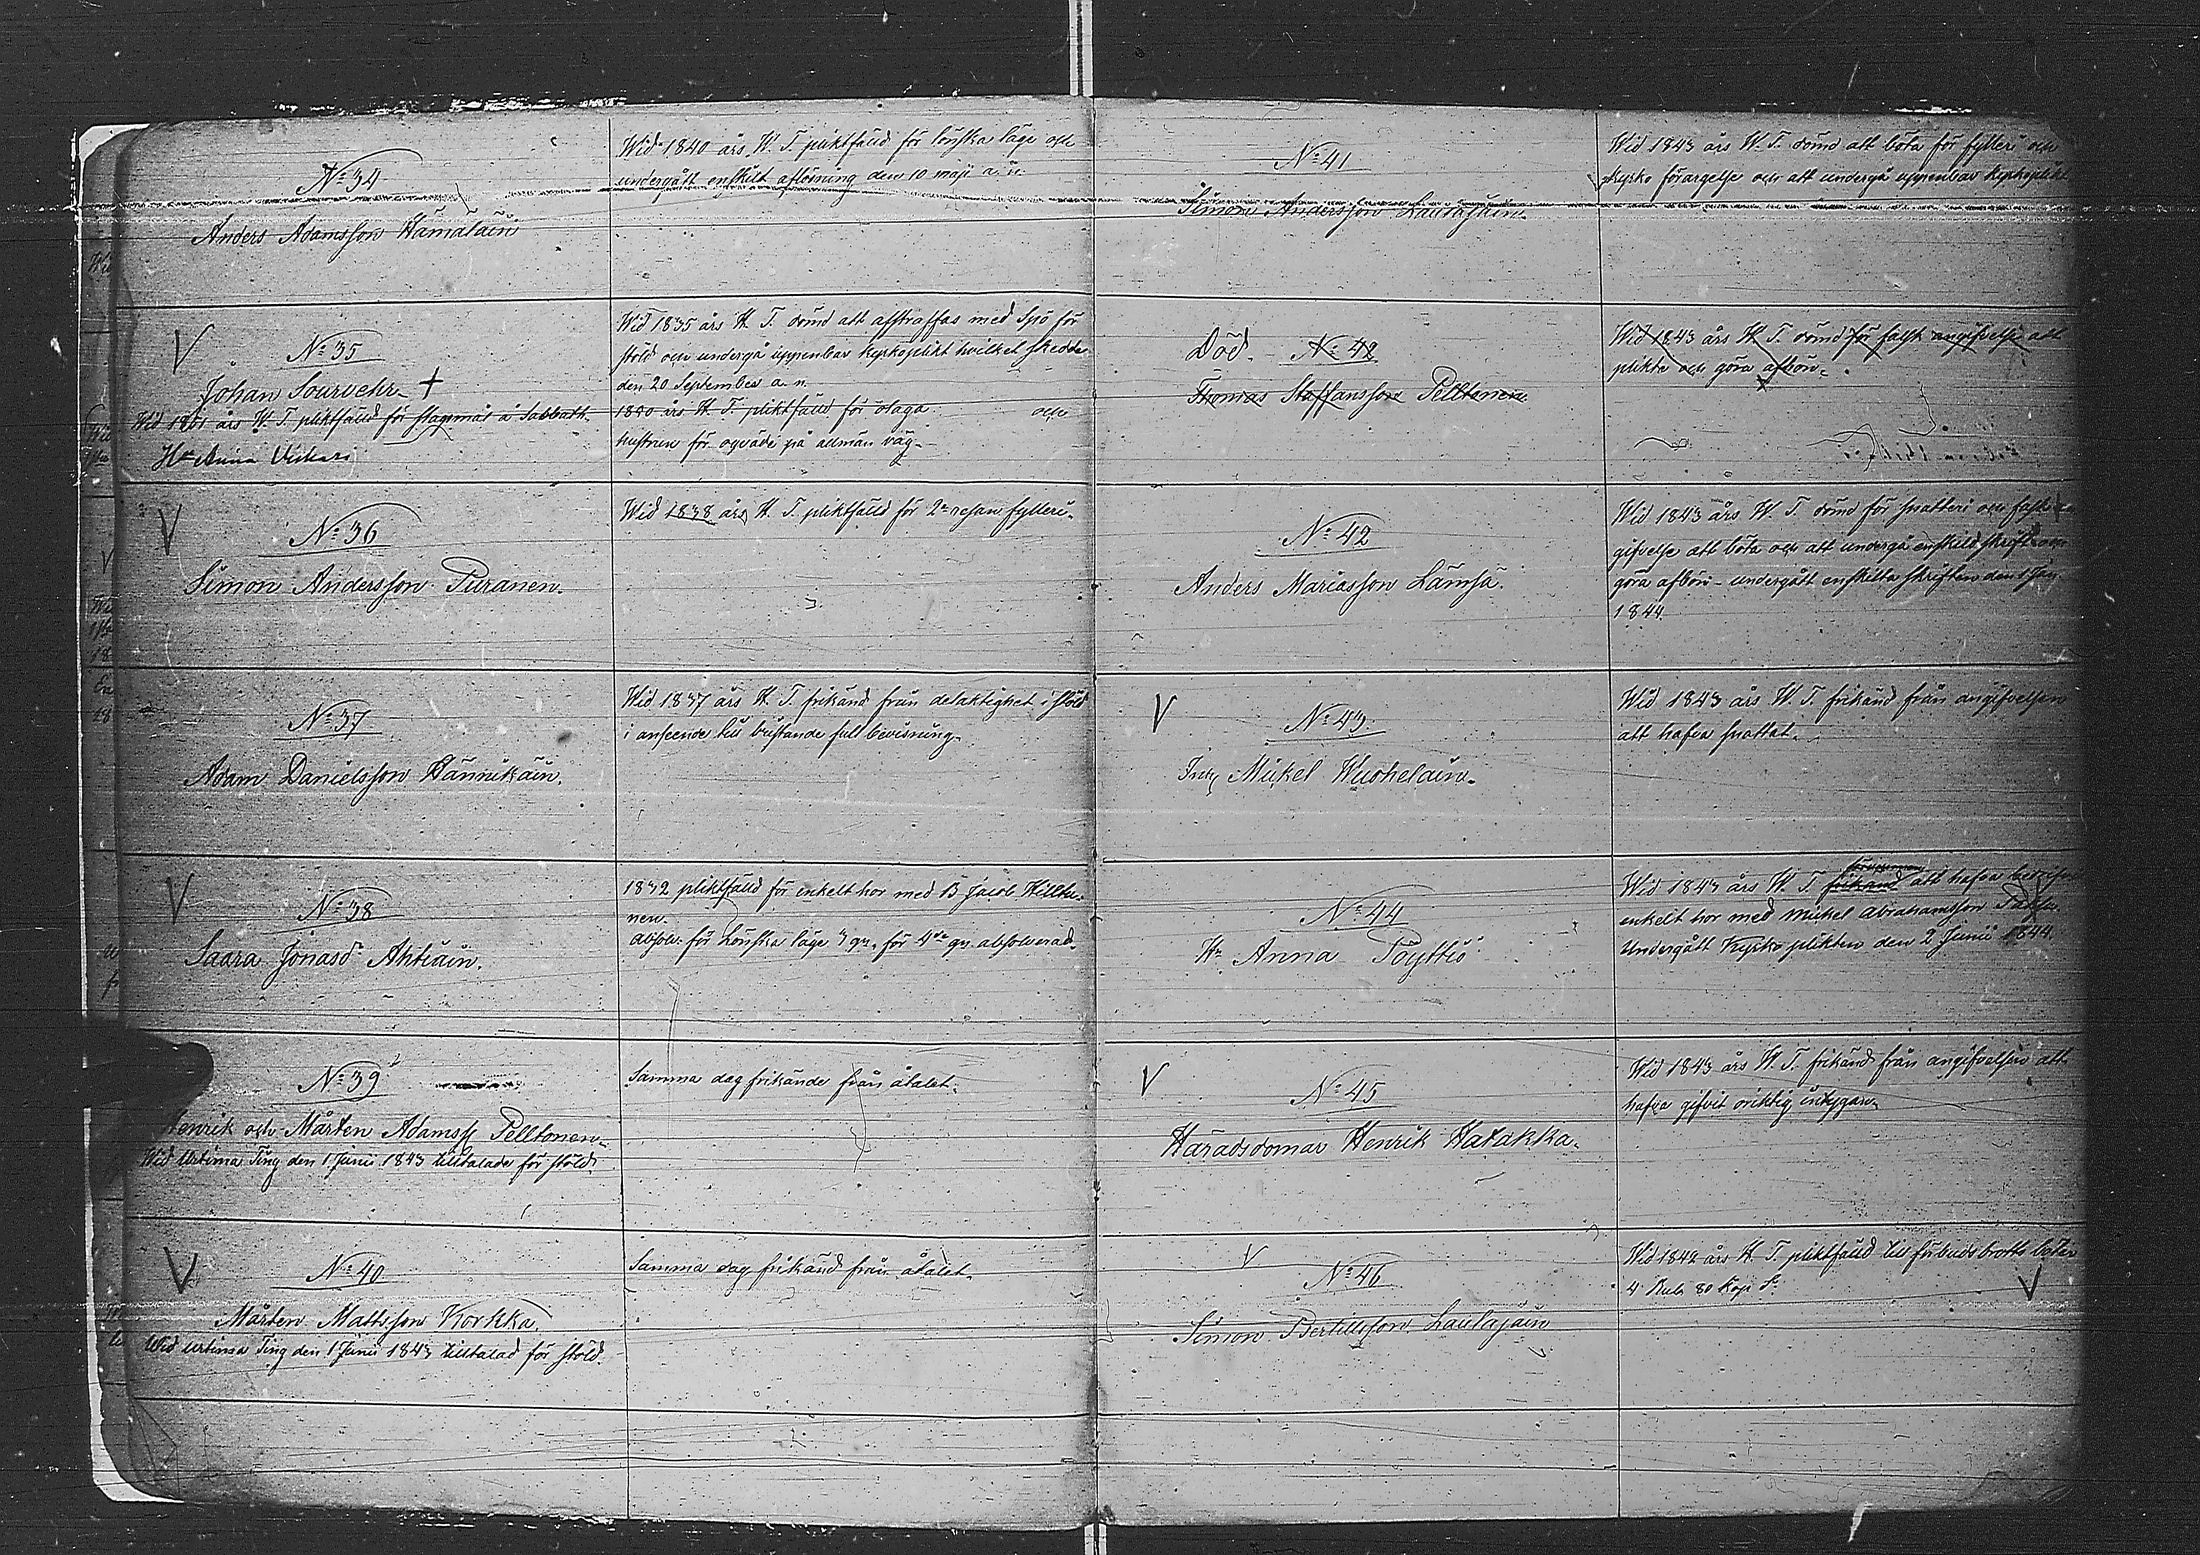 N:o 34
Anders Adamsson Hämäläin
Wid 1840 års W. T. pliktfäld för lönska läge och
undergått enskilt aflösning den 10 maji a. n.
V
N:o 35
Johan Sourvehr +
Wid 1861 års W. T. pliktfäld för slagsmål å Sabbath.
H:n Anna Vickari
Wid 1835 års H. T. dömd att afstraffas med Spö för
stöld och undergå uppenbar kyrkoplikt hvilket skedde
den 20 September a. n.
1840 års H. T. pliktfäld för olaga och
hustrun för oqväde på allmän väg.
V
N:o 36
Simon Andersson Puranen.
Wid 1838 års H. T. pliktfäld för 2:a resan fylleri.
N:o 37
Adam Danielsson Hännikäin.
Wid 1837 års H. T. frikänd från delaktighet i stöld
i anseende till bristande full bevisning.
V
N:o 38
Saara Jonasd:r Ahtiäin.
1832 pliktfäld för enkelt hor med B Jacob Hilttu-
nen.
Absolv. för Lönska läge 3 gr, för 4:de gr absolverad.
N:o 39
Henrik och Mårten Adamss Pelltonen
Wid Urtima Ting den 1 Junii 1843 tilltalade för stöld.
Samma dag frikände från åtalet.
V
N:o 40
Mårten Mattsson Korkka
Wid urtima Ting den 1 Junii 1843 tilltalad för stöld.
Samma dag frikänd från åtalet.
N:o 41
Simon Andersson
Wid 1843 års W. T. dömd att böta för fylleri och
kyrko förargelse och att undergå uppenbar kyrkoplikt
Död. N:o 42
Thomas Staffansson Pelltonen
Wid 1843 års H. T. dömd för falsk angifvelse att
plikta och göra afbön.
N:o 42
Anders Mariasson Lämsä.
Wid 1843 års W. T. dömd för snatteri och falsk an
gifvelse att böta och att undergå enskild skrift och
göra afbön - undergått enskilta skriften den 1 Jan.
1844.
V
N:o 43
Mickel Wuohelain.
Wid 1843 års W. T. frikänd från angifvelsen
att hafva snattat.
N:o 44
Anna Pöyttiö
Wid 1843 års W. T. frikänd att hafva bedrifvit
enkelt hor med Mickel Abrahamsson
Undergått Kyrko plikten den 2 Junii 1844.
V
N:o 45
Häradsdomar Henrik Hatakka.
Wid 1843 års W. T. frikänd från angifvelsen att
hafva gifvit oriktig intygan.
V
N:o 46
Simon Bertilsson Laulajain
Wid 1842 års H. T. pliktfäld till förbudsbrotts böter
4 Rub 80 Kop S:r
V